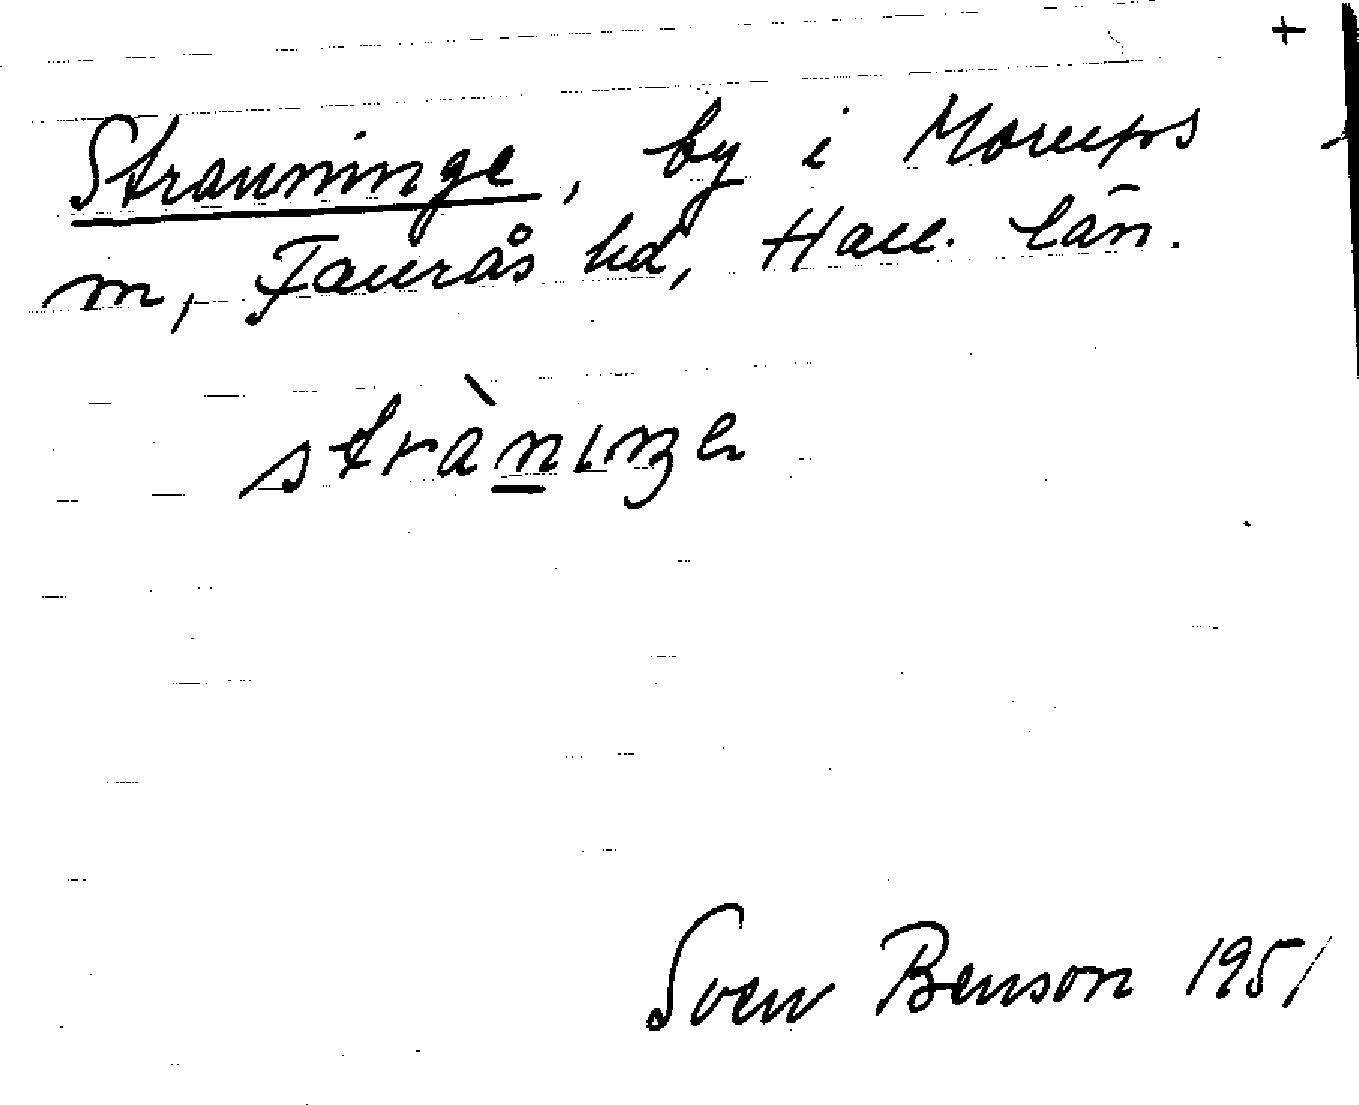 +
Stranninge, by i Morups
m, Faurås hd, Hall. län.
strànıŋe
Sven Benson 1951